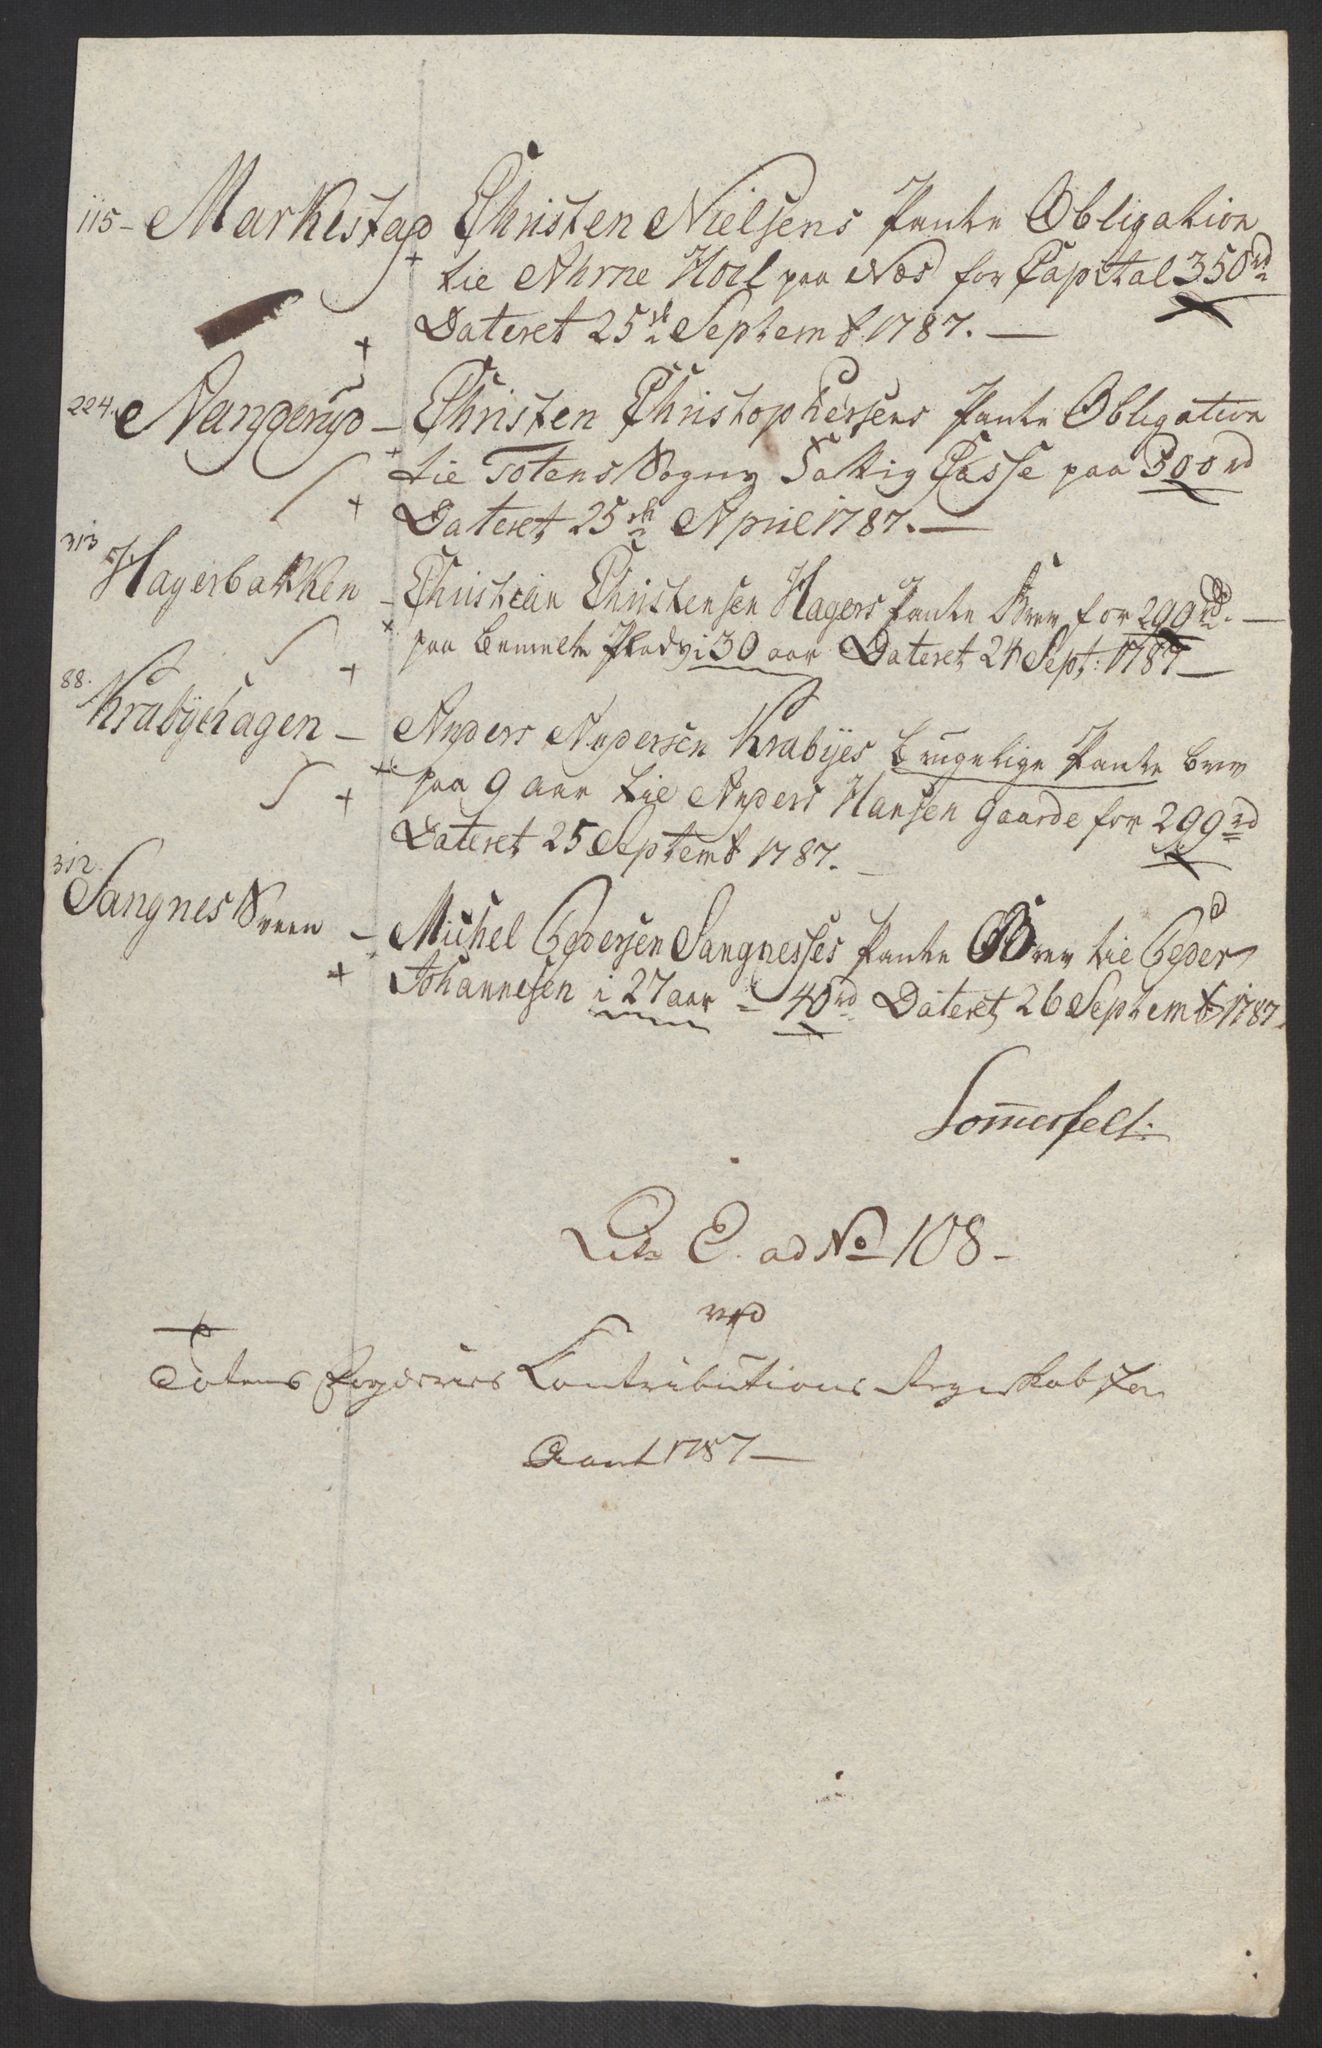 115 - Markestad Christen Nielsens Pante Obligation
til Arne Hoel paa Næs for Capital 350 rd
Dateret 25de Septembr 1787. —
224. Narjerud - Christen Christophersens Pante Obligation
til Totens Sogns Fattig Casse paa 300 rd
Dateret 25de April 1787. —
313 Hagerbakken - Christian Christensen Hagers Pante Brev for 299 rd. —
paa bemelte Plads i 30 aar Dateret 24 Sept: 1787 —
88. Krabyehagen — Anders Andersen Krabyes brugelige Pante brev
paa 9 aar til Anders Hansen Gaarde for 299 rd
Dateret 25 Septembr 1787. —
312. Sangnes Sveen - Michel Pedersen Sangnesses Pante Brev til Peder
Johannesen i 27 aar = 40 rd Dateret 26 Septembr 1787.
Sommerfelt.
Litr. E. ad No 108 -
ved
Totens Fogderies Contributions Regnskab for
Aaret 1787 —